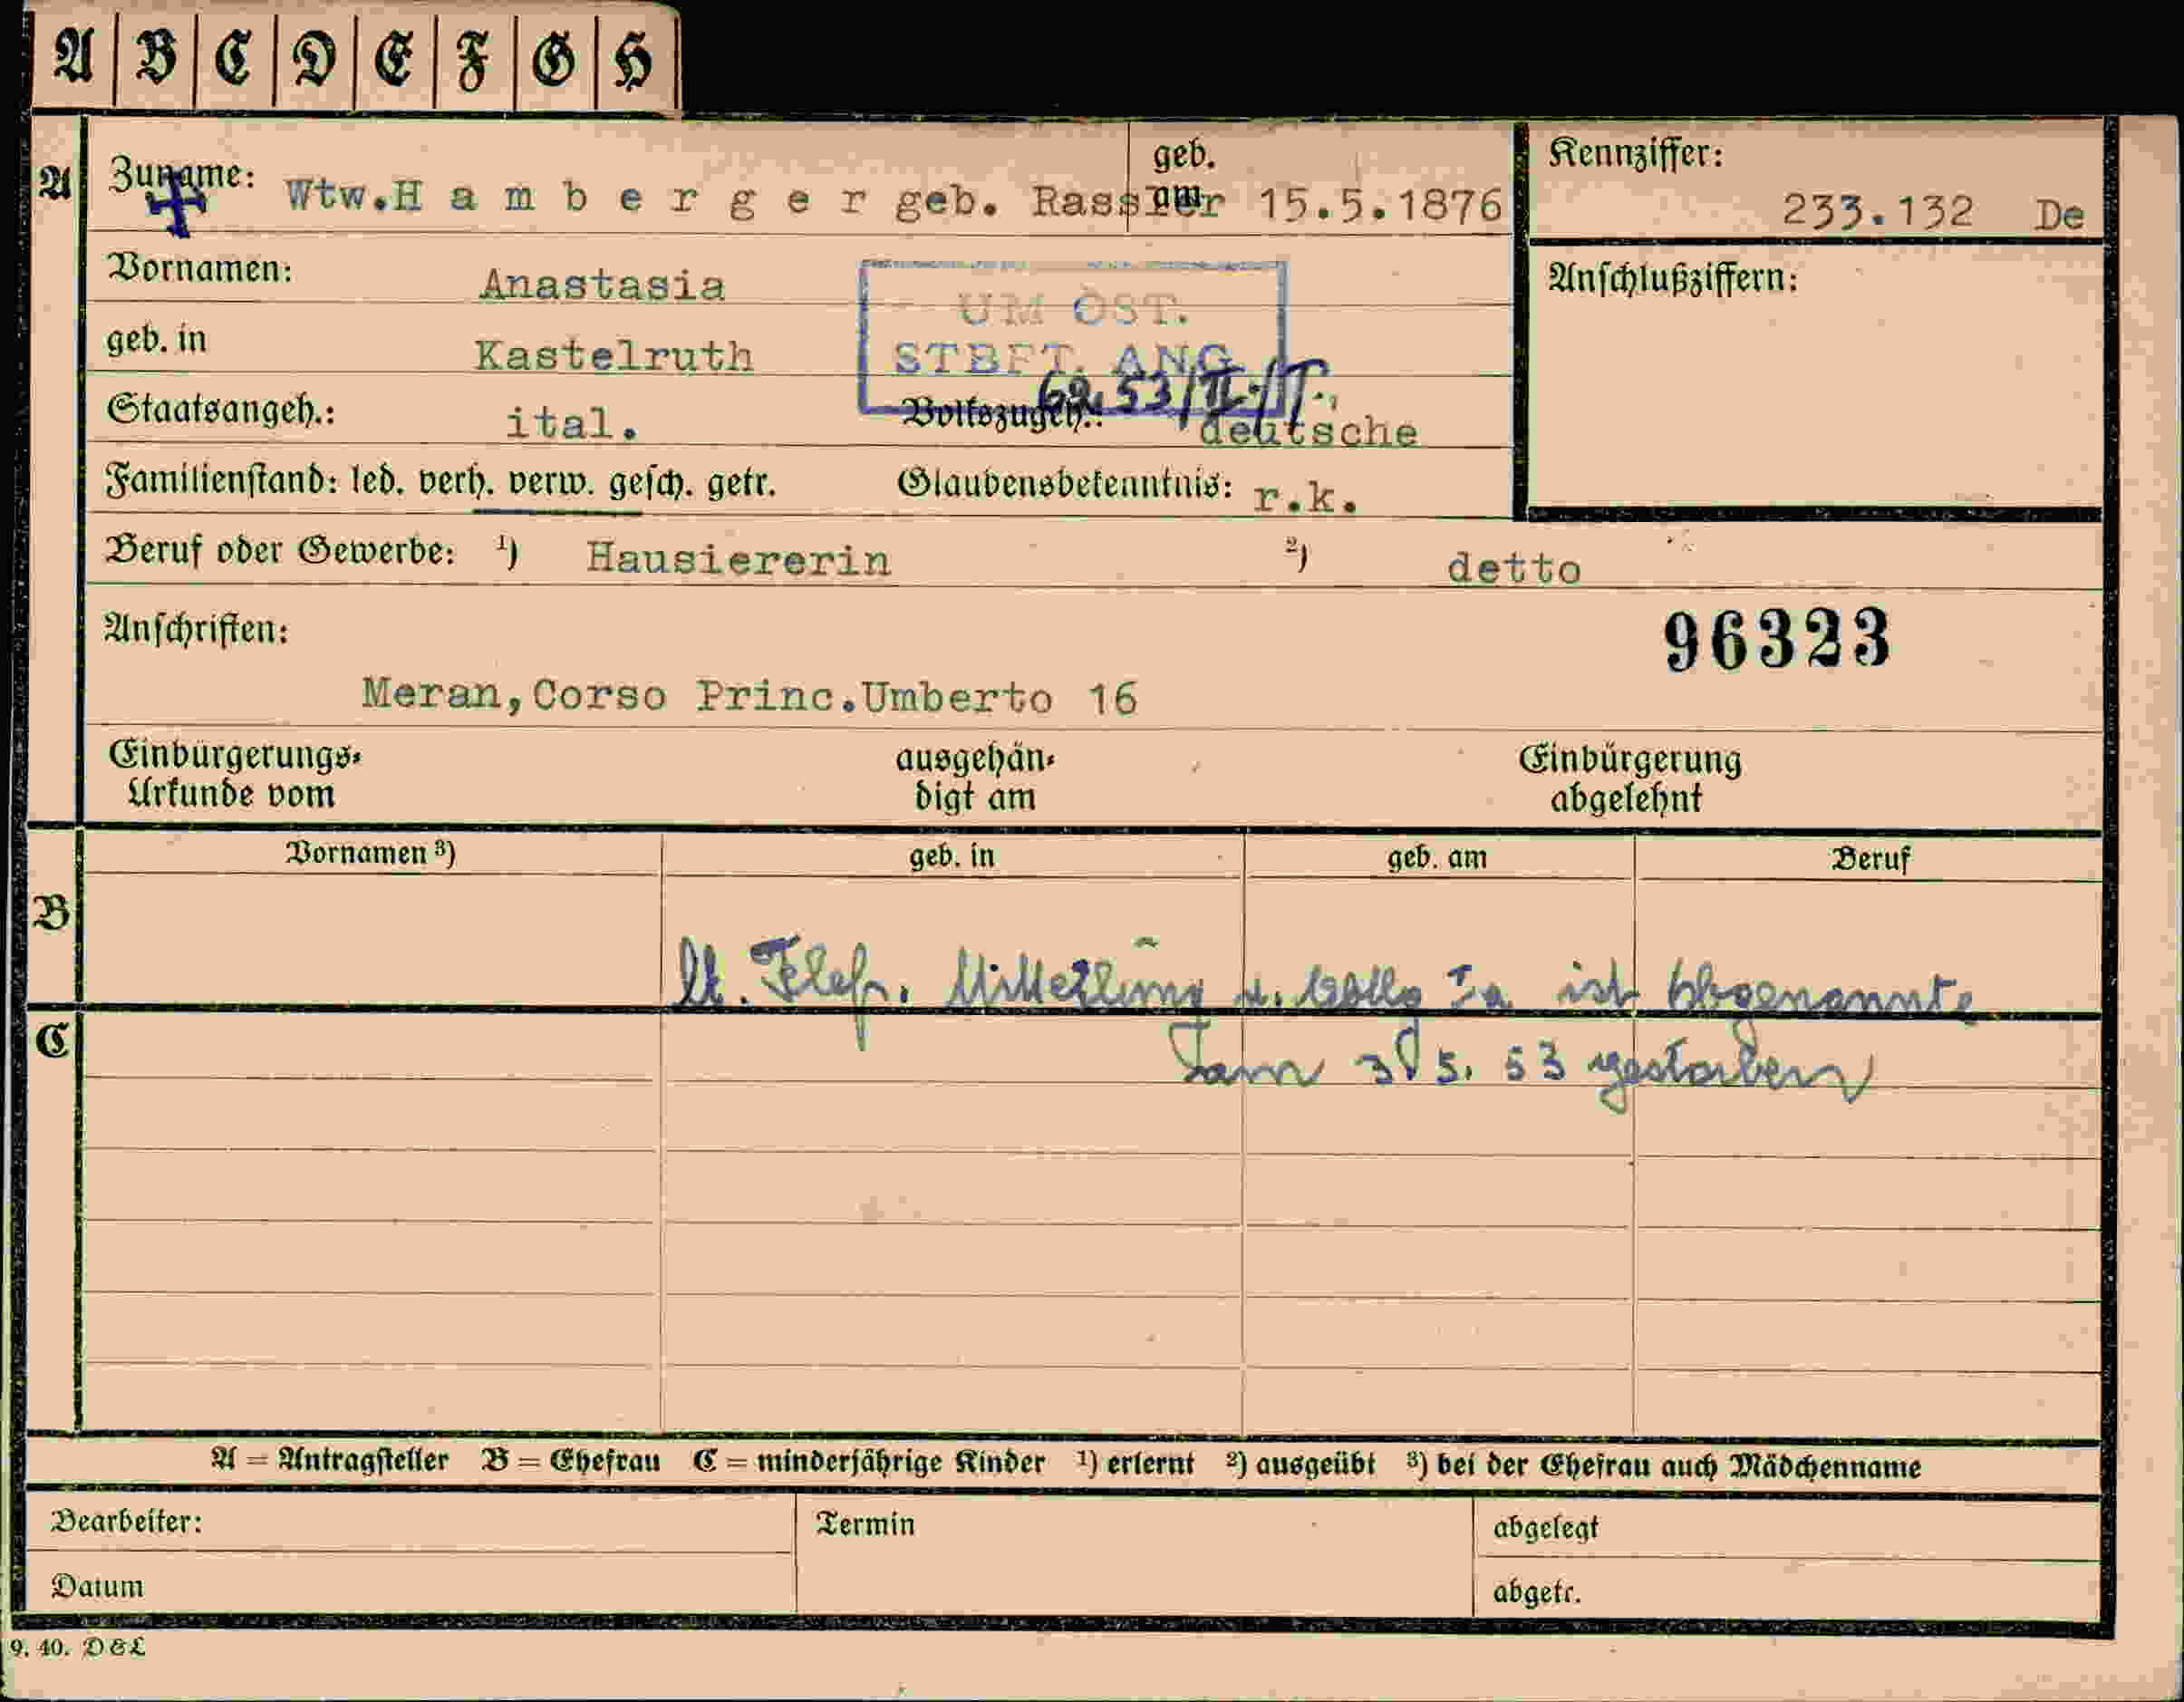 A B C D E F G H
A Zuname: Wtw.H a m b e r g e r geb. Rassler geb. am 15.5.1876
Kennziffer: 233.132 De
Vornamen: Anastasia
Anschlußziffern:
UM ÖST.
STBFT. ANG.
geb. in Kastelruth
Staatsangeh.: ital. Volkszugeh.: deutsche
Familienstand: led. verh. verw. gesch. getr. Glaubensbekenntnis: r.k.
Beruf oder Gewerbe: ¹) Hausiererin ²) detto
Anschriften:
96323
Meran,Corso Princ.Umberto 16
Einbürgerungs- ausgehän- Einbürgerung
Urkunde vom digt am abgelehnt
Vornamen ³) geb. in geb. am Beruf
B
lt. Telef. Mitteilung v. ist Obgenannte
C
am 5. 53 gestorben
A = Antragsteller B = Ehefrau C = minderjährige Kinder ¹) erlernt ²) ausgeübt ³) bei der Ehefrau auch Mädchenname
Bearbeiter: Termin abgelegt
Datum abgetr.
9. 40. D&L